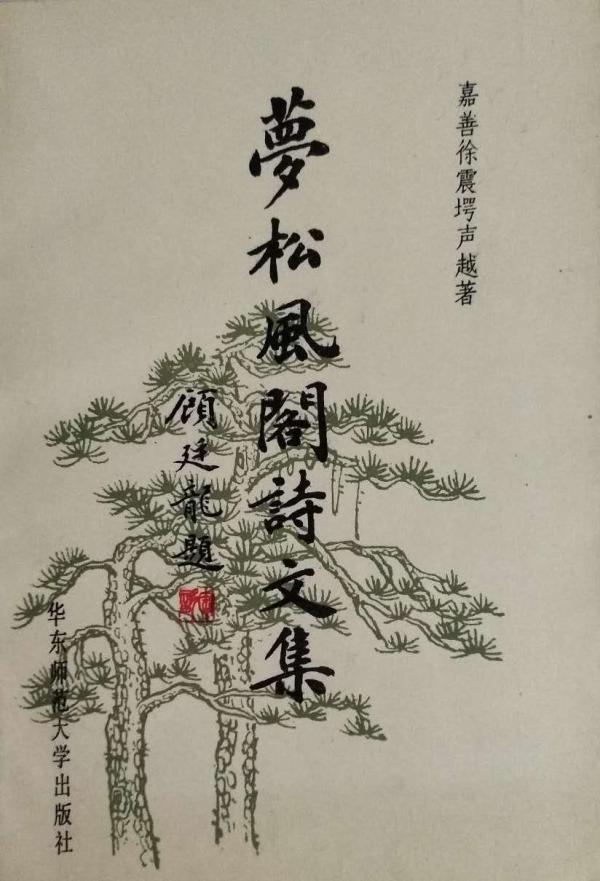 嘉善徐震堮声越著
夢松風閣詩文集
顾廷龍題
华东师范大学出版社